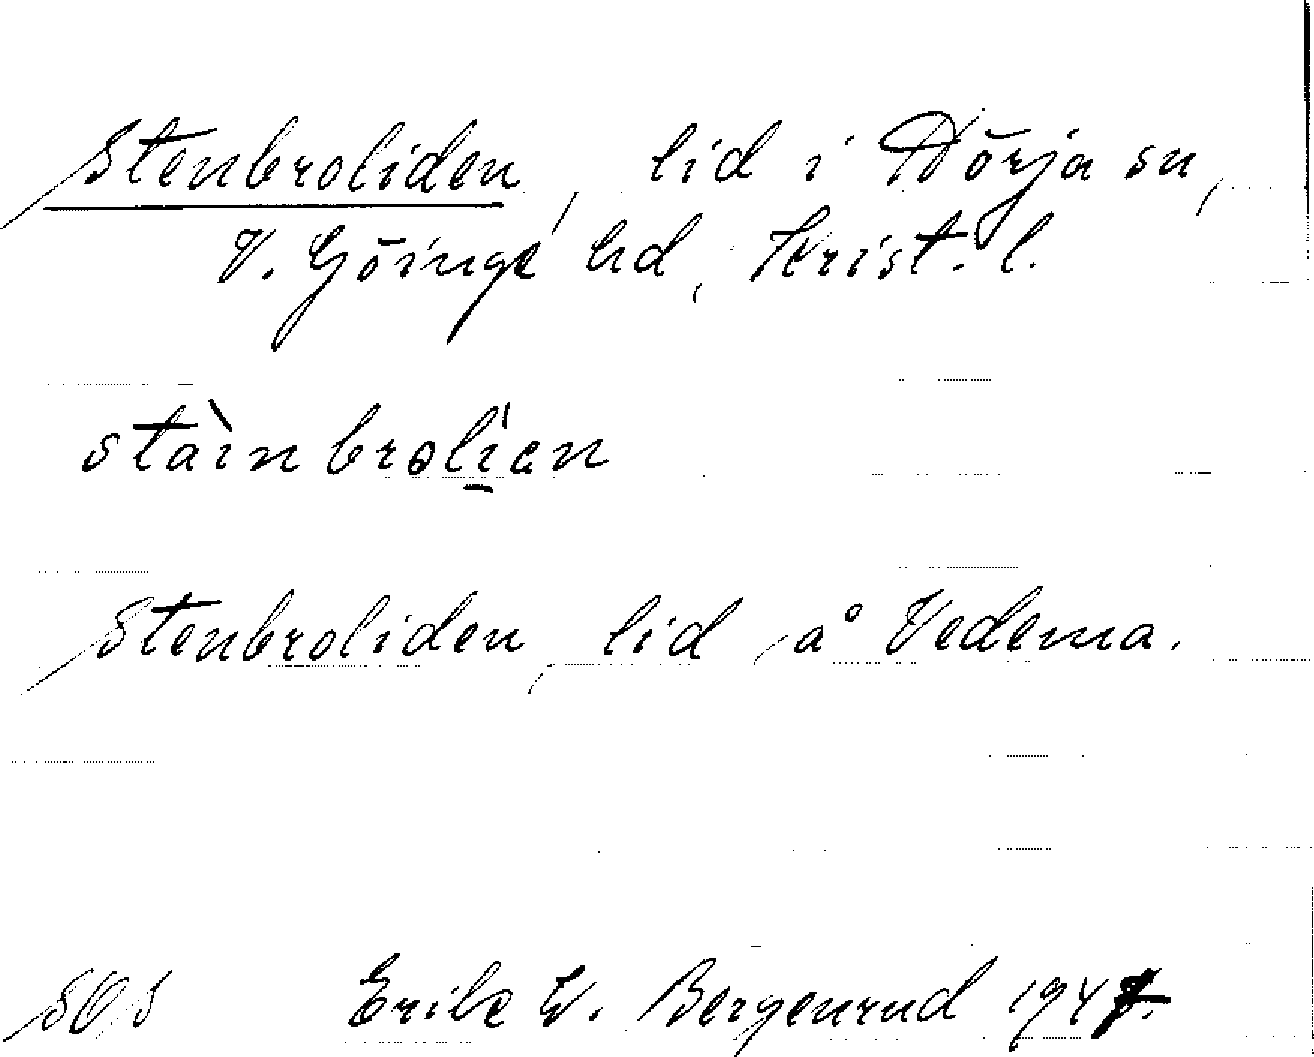 Stenbroliden, lid i Nörja sn,
V. Göinge hd, Krist. l.
stàinbrolíen
Stenbroliden, lid å Vedema.
SOS Erik W. Bergenrud 1947.